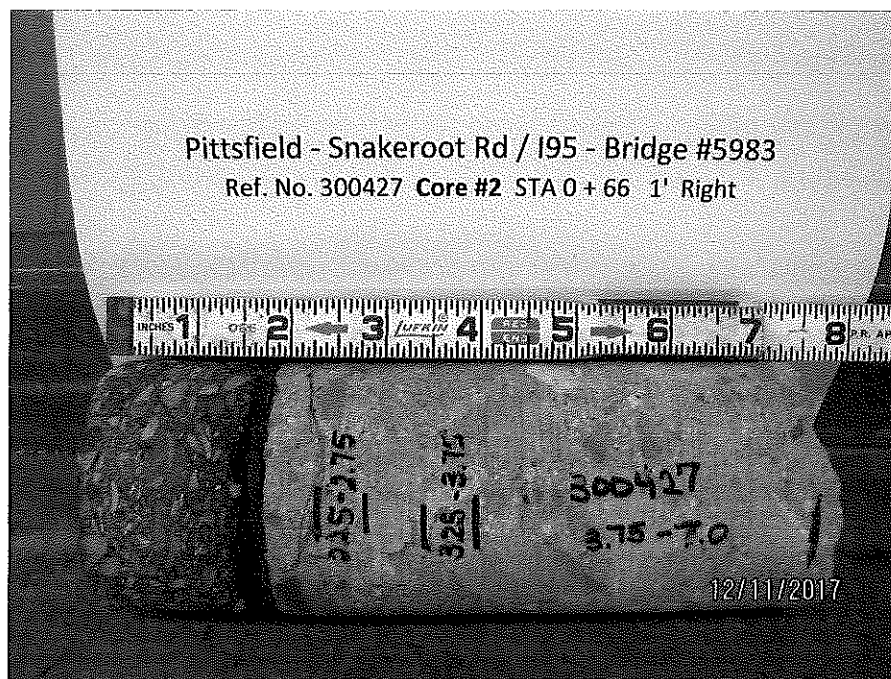 Pittsfield - Snakeroot Rd / I95 - Bridge #5983
Ref. No. 300427 Core #2 STA 0 + 66 1' Right
INCHES 1 2 3 LUFKIN 4 RED END 5 6 7 8
2.25-2.75
3.25-3.75
300427
3.75-7.0
12/11/2017